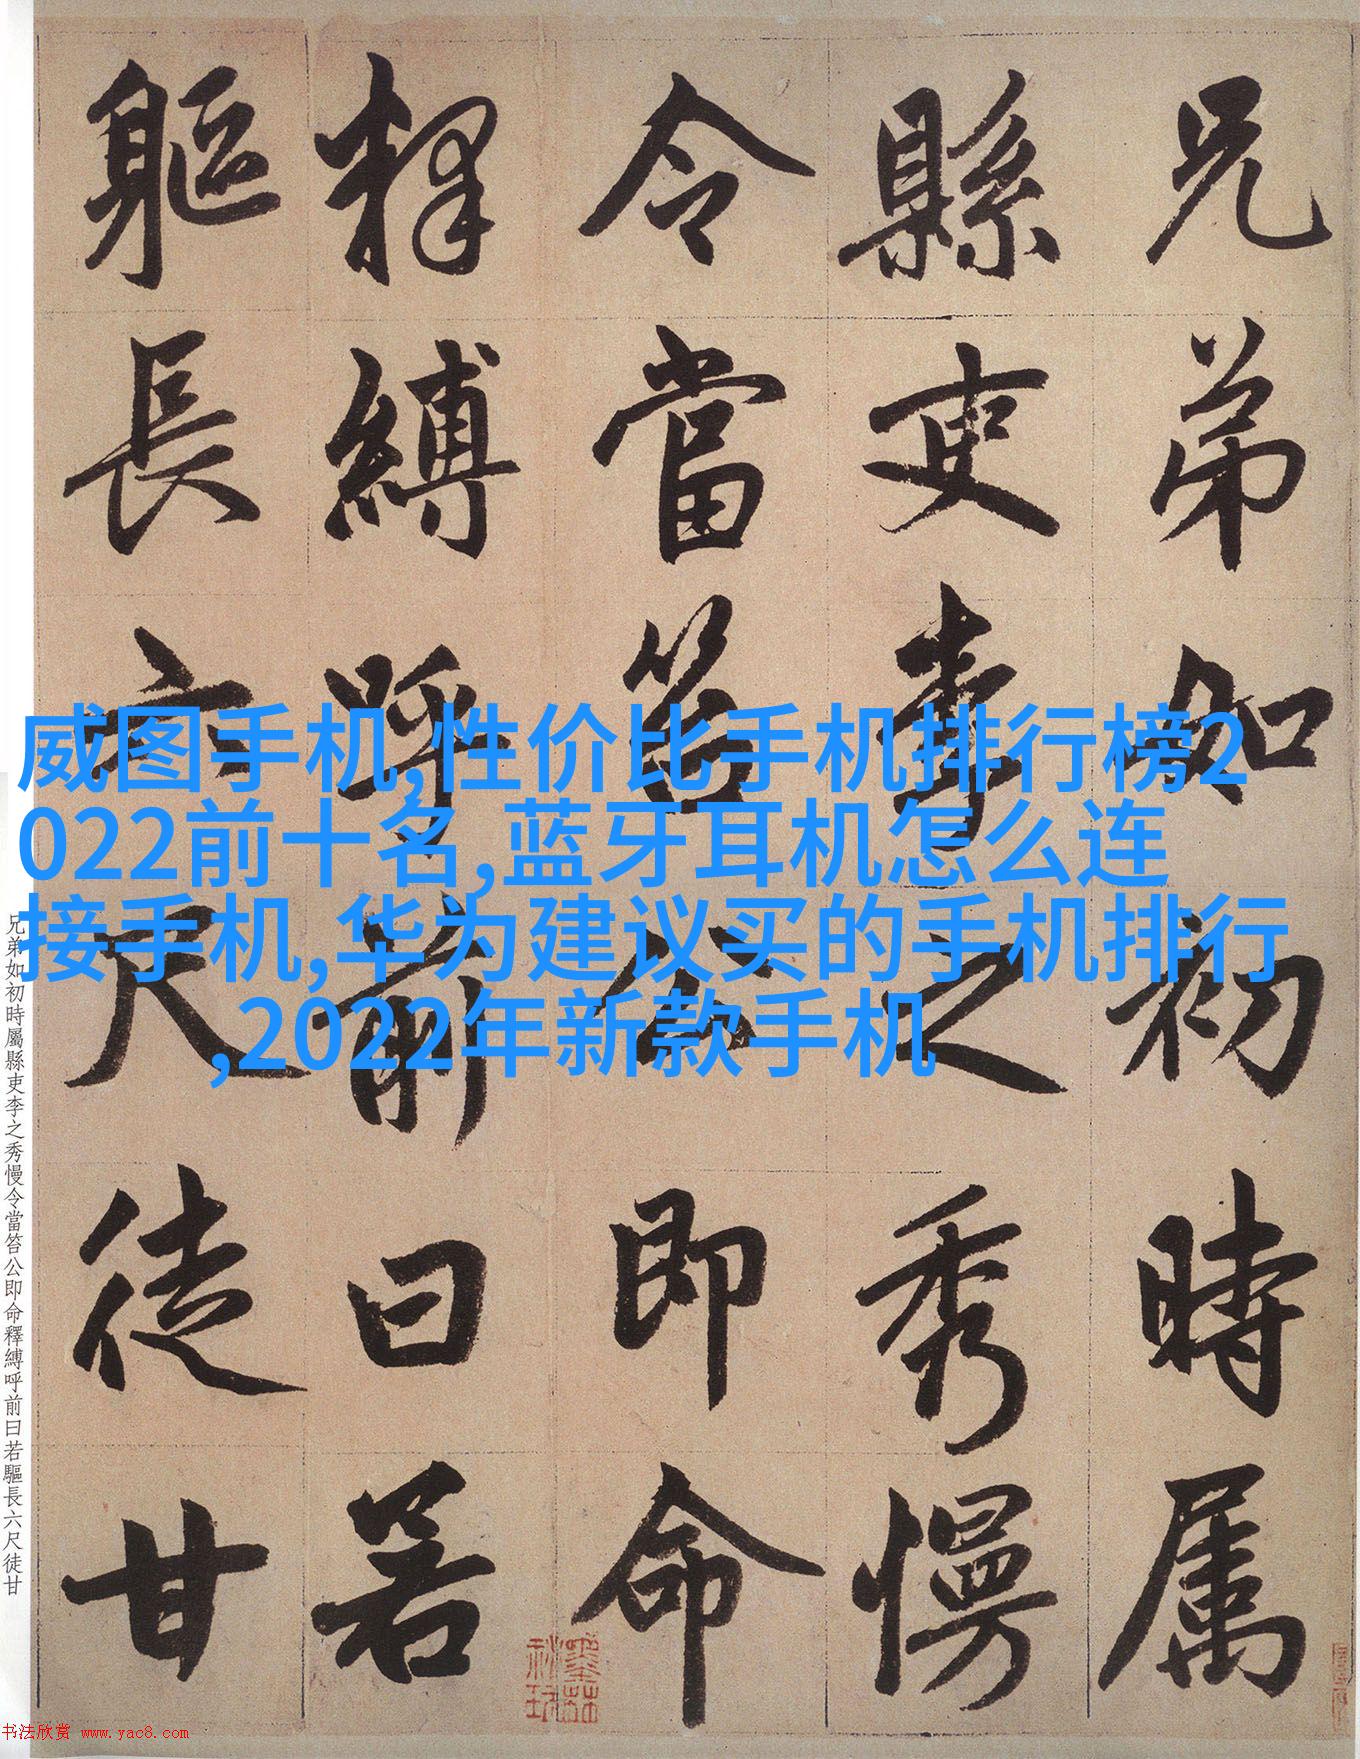 兄弟如初時属
縣吏李之秀慢
令當笞公即命
釋縛呼前曰若
軀長六尺徒甘
威图手机,性价比手机排行榜2
022前十名,蓝牙耳机怎么连
接手机,华为建议买的手机排行
,2022年新款手机
兄弟如初時屬縣吏李之秀慢令當笞公即命釋縛呼前曰若驅長六尺徒甘
书法欣赏 www.yac8.com